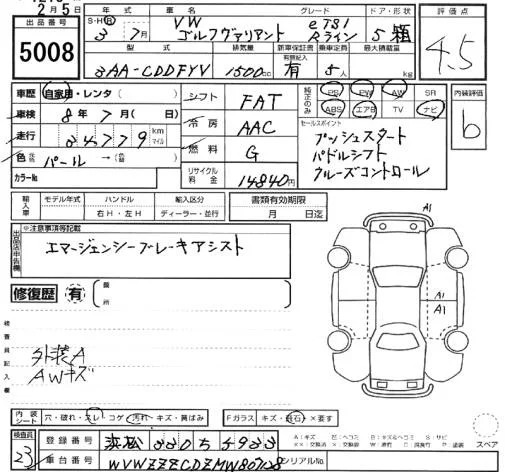 2月5日
出品番号 5008
S・H・Ⓡ 年式 3 7月
車名 VW ゴルフヴァリアント
グレード eTSI Rライン
ドア・形状 5
評価点 4.5
型式 3AA-CDDFYV
排気量 1500cc
新車保証書 取説記入 有
乗車定員 5人
最大積載量 kg
車歴 自家用・レンタ ( )
車検 8年7月( 日)
走行 24779 km マイル
色 パール → (色替)
カラーNo
シフト FAT
冷房 AAC
燃料 G
リサイクル料金 14840円
純正のみ PS PW AW SR
ABS エアB TV ナビ
内装評価 b
セールスポイント
プッシュスタート
パドルシフト
クルーズコントロール
輸入車 モデル年式 ハンドル 右H・左H 輸入区分 ディーラー・並行
書類有効期限 月 日迄
出品店申告欄 ※注意事項等記載
エマージェンシーブレーキアシスト
修復歴 有 箇所
検査員記入欄
外装A
AWキズ
A1
A1
A1
内装シート 穴・破れ・スレ・コゲ・汚れ・キズ・黄ばみ
Fガラス キズ・飛石・×要す
スペア
検査員 23
登録番号 浜松
車台番号
シリアルNo.